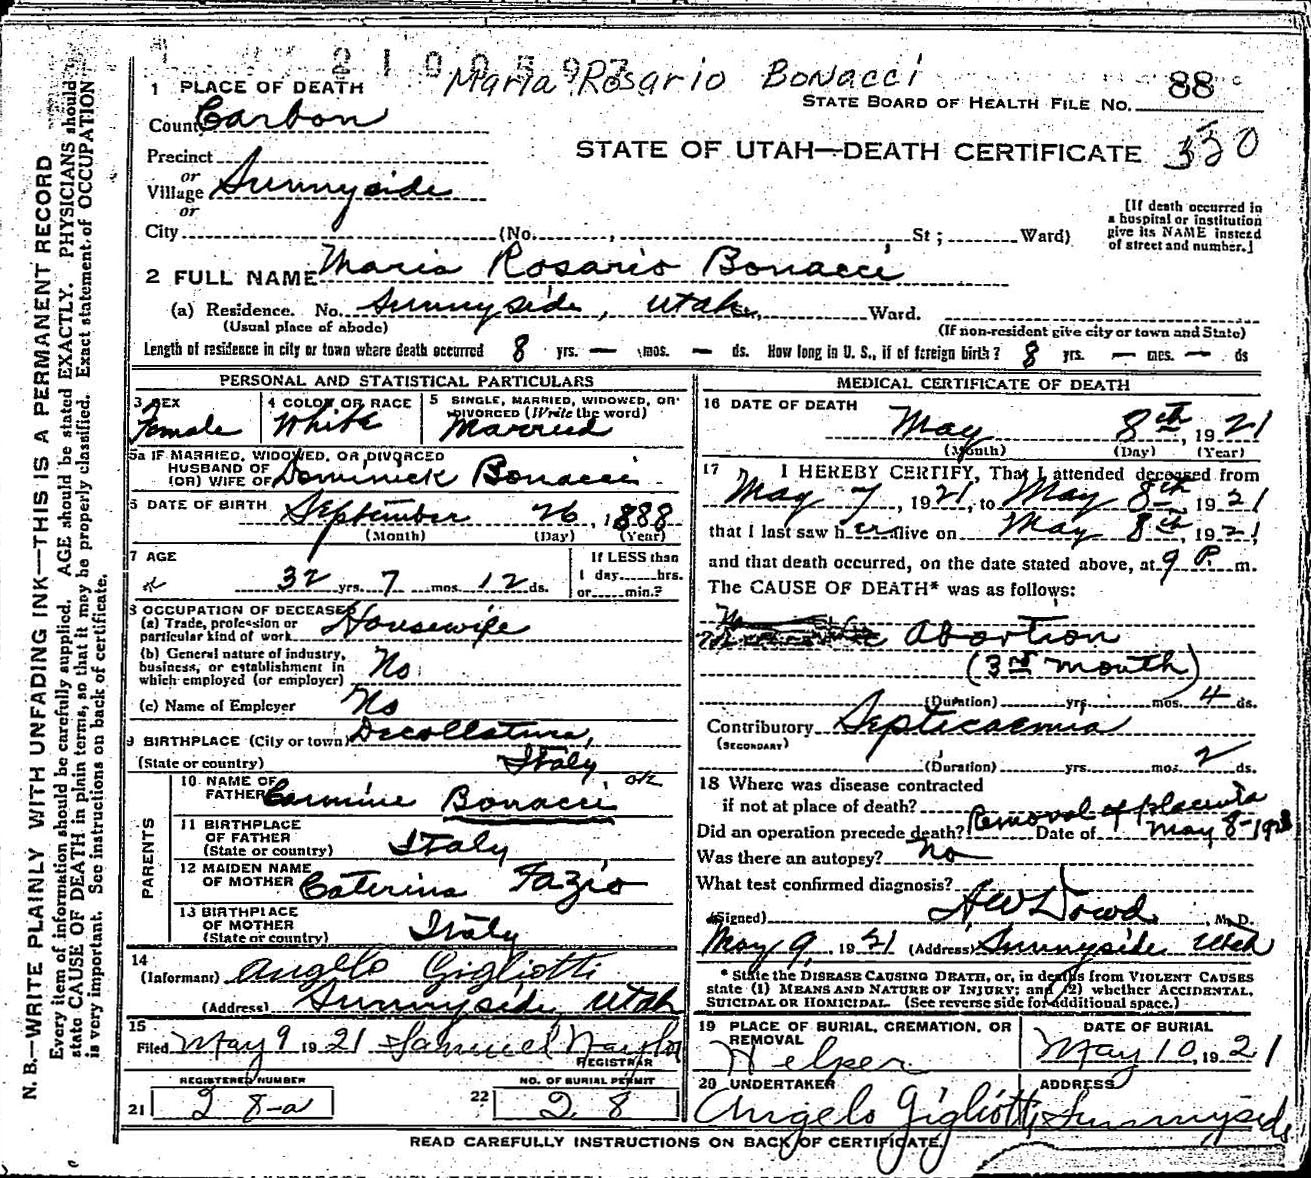 Maria Rosario Bonacci
88
1 PLACE OF DEATH
STATE BOARD OF HEALTH FILE NO.
County Carbon
STATE OF UTAH—DEATH CERTIFICATE 350
Precinct
or
Village Sunnyside
or
City (No. , St; Ward)
[If death occurred in
a hospital or institution
give its NAME instead
of street and number.]
2 FULL NAME Maria Rosario Bonacci
(a) Residence. No. Sunnyside, Utah, Ward.
(Usual place of abode) (If non-resident give city or town and State)
Length of residence in city or town where death occurred 8 yrs. — mos. — ds. How long in U. S., if of foreign birth? 8 yrs. — mos. — ds
PERSONAL AND STATISTICAL PARTICULARS
3 SEX Female
4 COLOR OR RACE White
5 SINGLE, MARRIED, WIDOWED, OR
DIVORCED (Write the word)
Married
5a IF MARRIED, WIDOWED, OR DIVORCED
HUSBAND OF
(OR) WIFE OF Dominick Bonacci
6 DATE OF BIRTH September 26, 1888
(Month) (Day) (Year)
7 AGE
32 yrs. 7 mos. 12 ds.
If LESS than
1 day hrs.
or min.?
8 OCCUPATION OF DECEASED
(a) Trade, profession or
particular kind of work Housewife
(b) General nature of industry,
business, or establishment in
which employed (or employer) No
(c) Name of Employer No
9 BIRTHPLACE (City or town) Decollatura,
(State or country) Italy
PARENTS
10 NAME OF
FATHER Carmine Bonacci
11 BIRTHPLACE
OF FATHER
(State or country) Italy
12 MAIDEN NAME
OF MOTHER Caterina Fazio
13 BIRTHPLACE
OF MOTHER
(State or country) Italy
14
(Informant) Angelo Gigliotti
(Address) Sunnyside Utah
15
Filed May 9 1921 Samuel Naylor
REGISTRAR
REGISTERED NUMBER
21 28-a
NO. OF BURIAL PERMIT
22 28
MEDICAL CERTIFICATE OF DEATH
16 DATE OF DEATH
May 8th, 1921
(Month) (Day) (Year)
17 I HEREBY CERTIFY, That I attended deceased from
May 7, 1921, to May 8th 1921
that I last saw her alive on May 8th, 1921,
and that death occurred, on the date stated above, at 9 P. m.
The CAUSE OF DEATH* was as follows:
Abortion
(3rd month)
(Duration) yrs. mos. 4 ds.
Contributory Septicaemia
(SECONDARY)
(Duration) yrs. mos. 2 ds.
18 Where was disease contracted
if not at place of death?
Removal of placenta
Did an operation precede death? Date of May 8-
Was there an autopsy? No
What test confirmed diagnosis?
(Signed) AW Dowd M. D.
May 9 1921 (Address) Sunnyside Utah
* State the DISEASE CAUSING DEATH, or, in deaths from VIOLENT CAUSES
state (1) MEANS AND NATURE OF INJURY; and (2) whether ACCIDENTAL,
SUICIDAL OR HOMICIDAL. (See reverse side for additional space.)
19 PLACE OF BURIAL, CREMATION, OR
REMOVAL
Helper
DATE OF BURIAL
May 10, 1921
20 UNDERTAKER
Angelo Gigliotti
ADDRESS
Sunnyside
READ CAREFULLY INSTRUCTIONS ON BACK OF CERTIFICATE.
N. B.—WRITE PLAINLY WITH UNFADING INK—THIS IS A PERMANENT RECORD
Every item of information should be carefully supplied. AGE should be stated EXACTLY. PHYSICIANS should
state CAUSE OF DEATH in plain terms, so that it may be properly classified. Exact statement of OCCUPATION
is very important. See instructions on back of certificate.